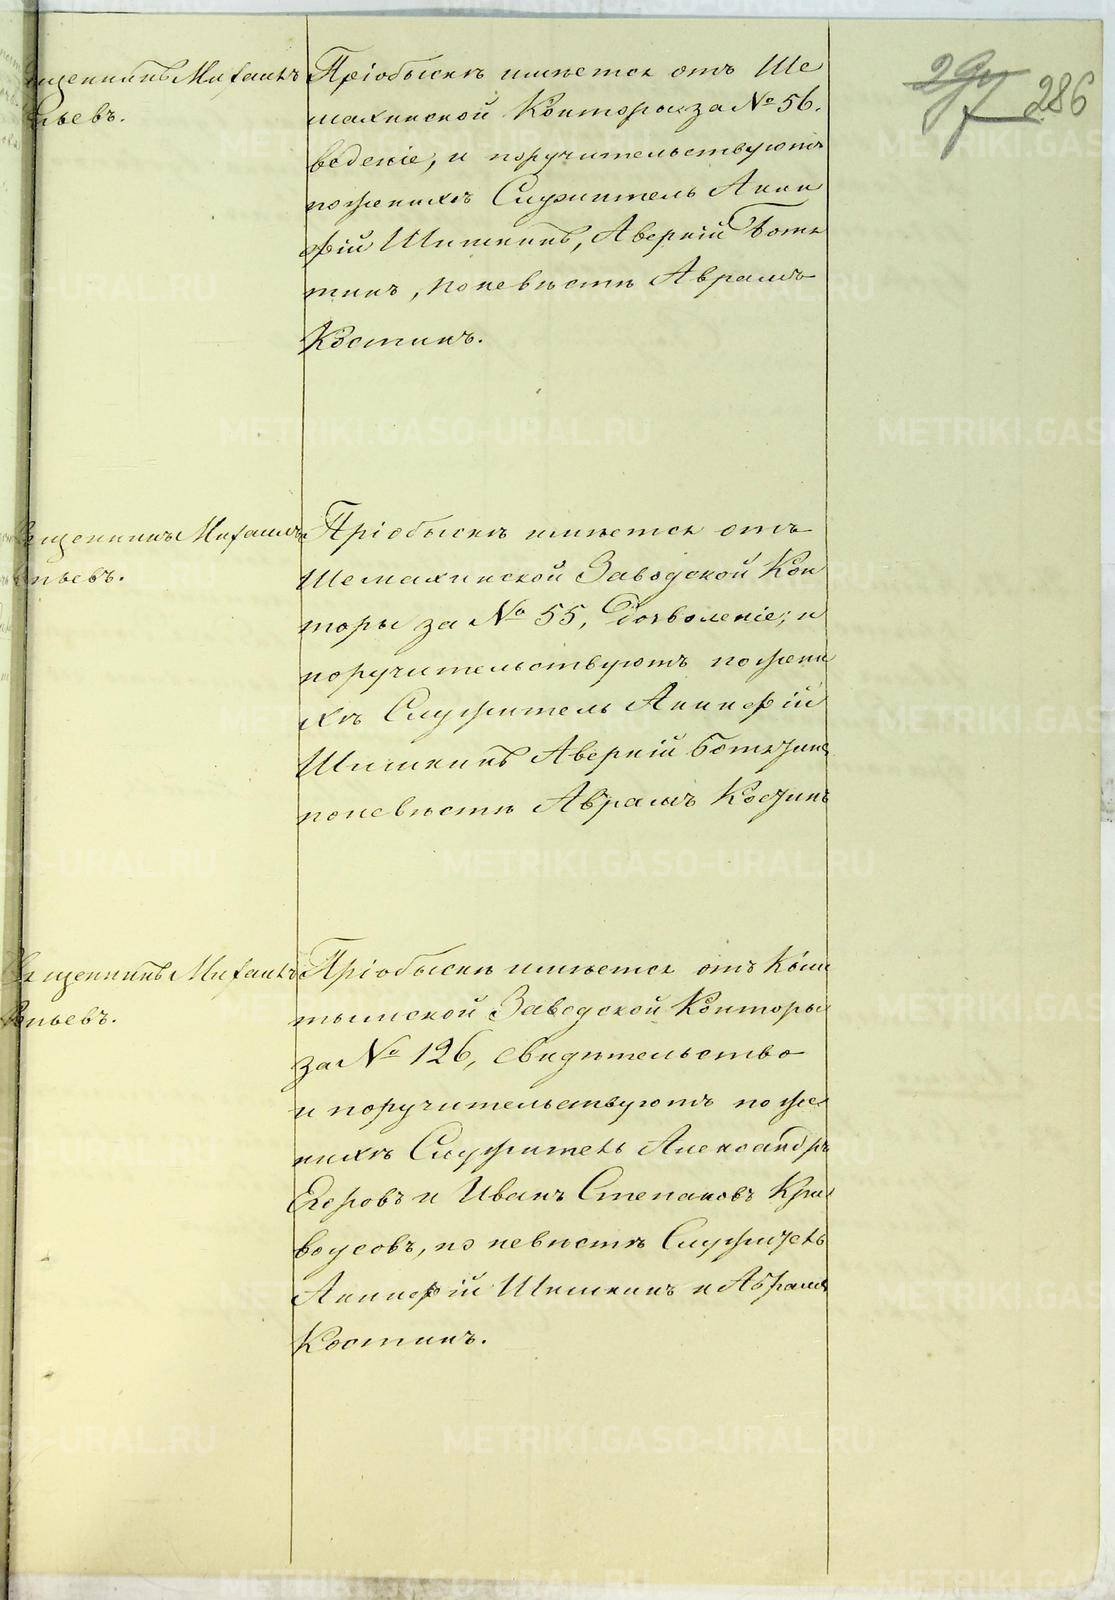 286
щенникъ Михаилъ
ньевъ.
При обыскѣ имѣется отъ Ше
махинской Конторы за № 56.
ведение, и поручительствуютъ
по женихѣ Служитель Акин
фій Шишкинъ, Аверкій Ботя
тинъ, по невѣстѣ Аврамъ
Костинъ.
щенникъ Михаилъ
ньевъ.
При обыскѣ имѣется отъ
Шемахинской Заводской Кон
торы за № 55, Дозволеніе; и
поручительствуютъ по жени
хѣ Служитель Акинфій
Шишкинъ Аверкій
по невѣстѣ Аврамъ Костинъ
Священникъ Михаилъ
ньевъ.
При обыскѣ имѣется отъ
Заводской Конторы
за № 126, свидѣтельство
и поручительствуютъ по же
нихѣ Служитель Александръ
Егоровъ и Иванъ Степановъ Кри
воусовъ, по невѣстѣ Служитель
Акинфій Шишкинъ и Абрамъ
Костинъ.
METRIKI.GASO-URAL.RU